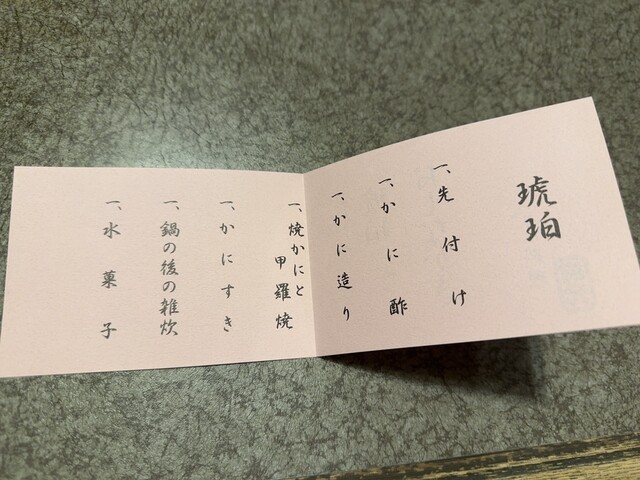 琥珀
一、先付け
一、かに酢
一、かに造り
一、焼かにと
甲羅焼
一、かにすき
一、鍋の後の雑炊
一、水菓子